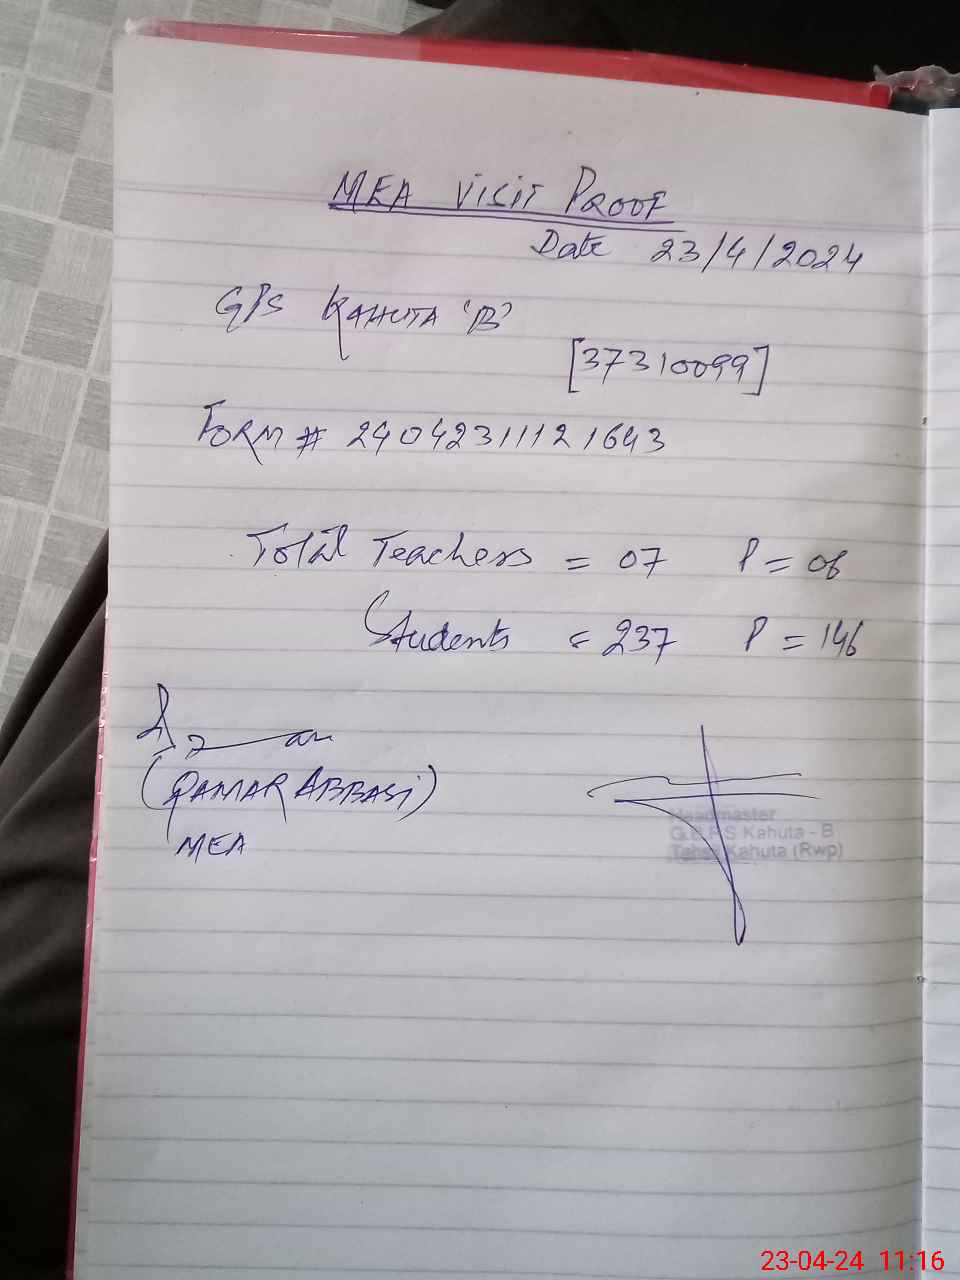 MEA VISIT PROOF
Date 23/4/2024
GPS KAHUTA 'B'
[37310099]
FORM # 24042311121643
Total Teachers = 07 P = 06
Students = 237 P = 146
(QAMAR ABBASI)
MEA
Headmaster
G.B.P.S Kahuta - B
Tehsil Kahuta (Rwp)
23-04-24 11:16